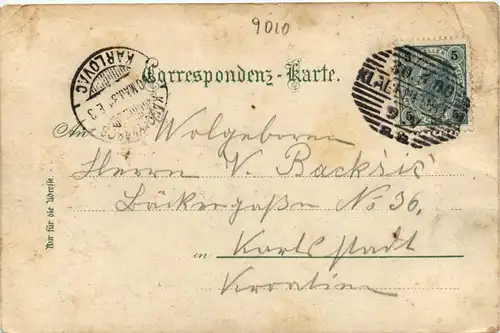 9010
Correspondenz-Karte.
KARLOVAC
5
An Wolgeboren
Herrn V. Backšić
Bäckergaße No 36.
in Karlstadt
Kroatien
Nur für die Adresse.